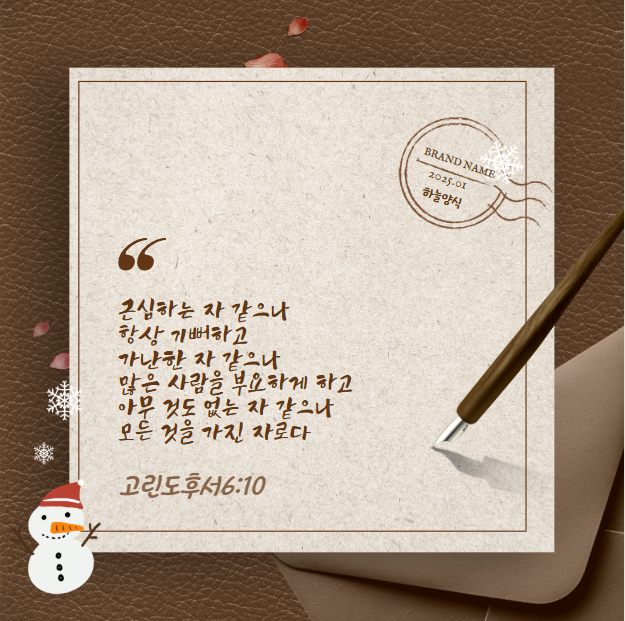 BRAND NAME
2025.01
하늘양식
“
근심하는 자 같으나
항상 기뻐하고
가난한 자 같으나
많은 사람을 부요하게 하고
아무 것도 없는 자 같으나
모든 것을 가진 자로다
고린도후서6:10